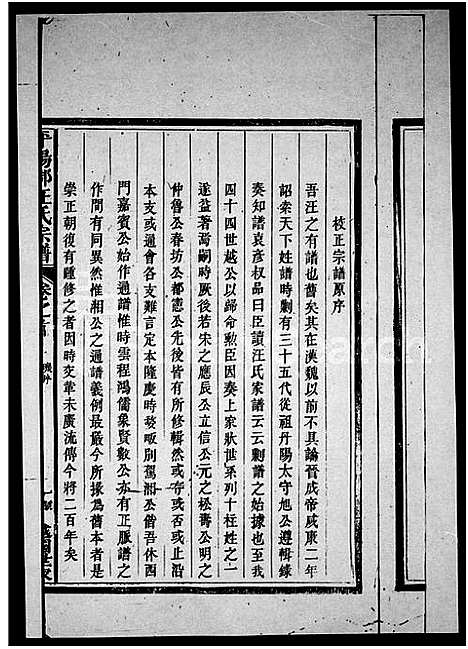 校正宗譜原序
吾汪之有譜也舊矣其在漢魏以前不具論晉成帝咸康二年
詔索天下姓譜時剿有三十五代從祖丹陽太守旭公遵輯錄
奏知譜袁彦权品曰臣讀汪氏家譜云云剿譜之始據也至我
四十四世越公以歸命勲臣因奏上家狀世系列十枉姓之一
遂益著焉嗣時厥後若宋之應辰公立信公元之松壽公明之
仲魯公春坊公都憲公先後皆有所修輯然或存或否或止沿
本支或通會各支難言定本隆慶時婺𠵸别駕湘公偕吾休西
門嘉賓公始作通譜惟時雲程鴻儒象賢數公亦有正脈譜之
作間有同異然惟湘公之通譜義例最嚴今所據為舊本者是
崇正朝復有踵修之者因時变革未廣流傳今將二百年矣
平陽郡汪氏宗譜
卷之首